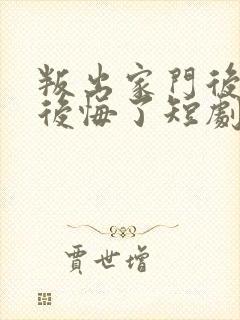 叛出家門後
後悔了短劇
賈世增